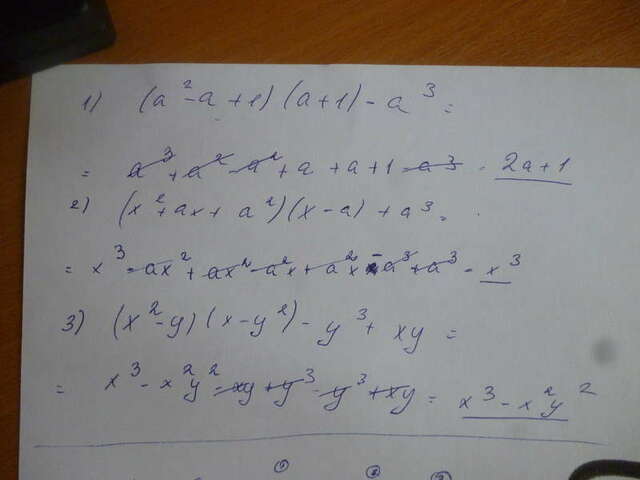 1) (a² - a + 1)(a + 1) - a³ =
= a³ + a² - a² + a + a + 1 - a³ = 2a + 1
2) (x² + ax + a²)(x - a) + a³ =
= x³ - ax² + ax² - a²x + a²x - a³ + a³ = x³
3) (x² - y)(x - y²) - y³ + xy =
= x³ - x²y² - xy + y³ - y³ + xy = x³ - x²y²